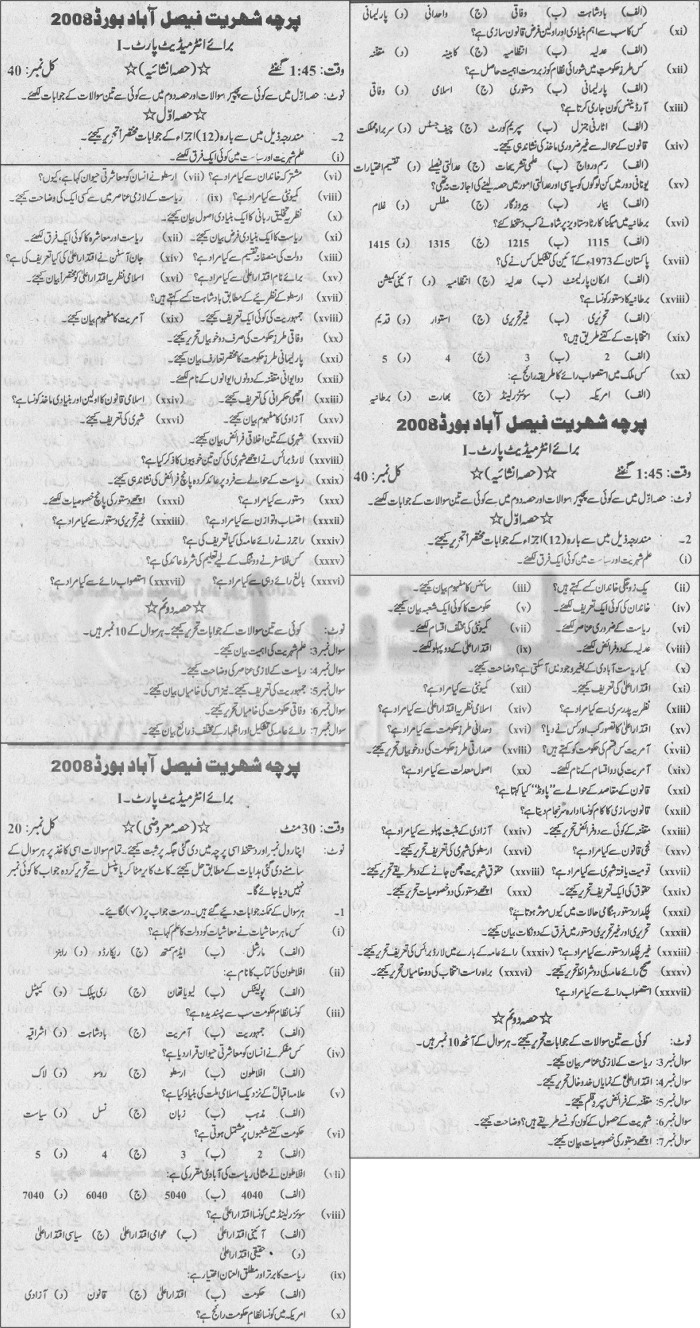 پرچہ شہریت فیصل آباد بورڈ 2008
برائے انٹرمیڈیٹ پارٹ - I
وقت: 1:45 گھنٹے ☆(حصہ انشائیہ)☆ کل نمبر: 40
نوٹ: حصہ اوّل میں سے کوئی سے پچیس سوالات اور حصہ دوم میں سے کوئی سے تین سوالات کے جوابات لکھئے۔
☆حصہ اوّل☆
2- مندرجہ ذیل میں سے بارہ (12) اجزاء کے جوابات مختصراً تحریر کیجئے۔
(i) علم شہریت اور سیاست میں کوئی ایک فرق لکھئے۔
(vi) مشترکہ خاندان سے کیا مراد ہے؟ (vii) ارسطو نے انسان کو معاشرتی حیوان کہا ہے، کیوں؟
(viii) کمیونٹی سے کیا مراد ہے؟ (ix) ریاست کے لازمی عناصر میں سے کسی ایک کی وضاحت کیجئے۔
(x) نظریہ تخلیق ربانی کا ایک بنیادی اصول بیان کیجئے۔
(xi) ریاست کا ایک بنیادی فرض بیان کیجئے۔ (xii) ریاست اور معاشرہ کا کوئی ایک فرق لکھئے۔
(xiii) دولت کی منصفانہ تقسیم سے کیا مراد ہے؟ (xiv) جان آسٹن نے اقتدار اعلیٰ کی کیا تعریف کی ہے؟
(xv) برائے نام اقتدار اعلیٰ سے کیا مراد ہے؟ (xvi) اسلامی نظریہ اقتدار اعلیٰ کو مختصراً بیان کیجئے۔
(xvii) ارسطو کے نظریے کے مطابق بادشاہت کسے کہتے ہیں؟
(xviii) جمہوریت کی کوئی ایک تعریف کیجئے۔ (xix) آمریت کا مفہوم بیان کیجئے۔
(xx) وفاقی طرز حکومت کی صرف دو خوبیاں تحریر کیجئے۔
(xxi) پارلیمانی طرز حکومت کا مختصر تعارف بیان کیجئے۔
(xxii) دو ایوانی مقننہ کے دونوں ایوانوں کے نام لکھئے۔
(xxiii) اچھی حکمرانی کی تعریف کیجئے۔ (xxiv) اسلامی قانون کا اولین اور بنیادی ماخذ کونسا ہے؟
(xxv) آزادی کا مفہوم بیان کیجئے۔ (xxvi) شہری کی تعریف کیجئے۔
(xxvii) شہری کے تین اخلاقی فرائض بیان کیجئے۔
(xxviii) لارڈ برائس نے اچھے شہری کی کن تین خوبیوں کا ذکر کیا ہے؟
(xxix) ریاست کے حوالے سے فرد پر عائد کردہ پانچ فرائض کی نشاندہی کیجئے۔
(xxx) دستور سے کیا مراد ہے؟ (xxxi) اچھے دستور کی پانچ خصوصیات لکھئے۔
(xxxii) احتساب و توازن سے کیا مراد ہے؟ (xxxiii) غیر تحریری دستور سے کیا مراد ہے؟
(xxxiv) راجرز نے رائے عامہ کی کیا تعریف کی ہے؟
(xxxv) کس فلاسفر نے ووٹنگ کے لیے تعلیم کی شرط عائد کی ہے؟
(xxxvi) بالغ رائے دہی سے کیا مراد ہے؟ (xxxvii) استصواب رائے سے کیا مراد ہے؟
☆حصہ دوئم☆
نوٹ: کوئی سے تین سوالات کے جوابات تحریر کیجئے۔ ہر سوال کے 10 نمبر ہیں۔
سوال نمبر 3: علم شہریت کی اہمیت بیان کیجئے۔
سوال نمبر 4: ریاست کے لازمی عناصر کی وضاحت کیجئے۔
سوال نمبر 5: جمہوریت کی تعریف کیجئے۔ نیز اس کی خامیاں بیان کیجئے۔
سوال نمبر 6: وفاقی حکومت کی خامیاں تحریر کیجئے۔
سوال نمبر 7: رائے عامہ کی تشکیل اور اظہار کے مختلف ذرائع بیان کیجئے۔
پرچہ شہریت فیصل آباد بورڈ 2008
برائے انٹرمیڈیٹ پارٹ - I
وقت: 30 منٹ ☆(حصہ معروضی)☆ کل نمبر: 20
نوٹ: اپنا رول نمبر اور دستخط اسی پرچہ میں دی گئی جگہ پر ثبت کیجئے۔ تمام سوالات اسی کاغذ پر ہر سوال کے
سامنے دی گئی ہدایات کے مطابق حل کیجئے۔ کاٹ کا یا مٹا کر یا پنسل سے تحریر کردہ جواب کا کوئی نمبر
نہیں دیا جائے گا۔
1- ہر سوال کے ممکنہ جوابات دیے گئے ہیں۔ درست جواب پر (✓) لگائیے۔
(i) کس ماہر معاشیات نے معاشیات کو دولت کا علم کہا ہے؟
(الف) مارشل (ب) ایڈم سمتھ (ج) ریکارڈو (د) رابنز
(ii) افلاطون کی کتاب کا نام ہے:
(الف) پولیٹکس (ب) لیویاتھان (ج) ری پبلک (د) کیپٹل
(iii) کونسا نظام حکومت سب سے پسندیدہ ہے؟
(الف) جمہوریت (ب) آمریت (ج) بادشاہت (د) اشرافیہ
(iv) کس مفکر نے انسان کو معاشرتی حیوان قرار دیا ہے؟
(الف) افلاطون (ب) ارسطو (ج) روسو (د) لاک
(v) علامہ اقبالؒ کے نزدیک اسلامی ملت کی بنیاد کیا ہے؟
(الف) مذہب (ب) زبان (ج) نسل (د) سیاست
(vi) حکومت کتنے شعبوں پر مشتمل ہوتی ہے؟
(الف) 2 (ب) 3 (ج) 4 (د) 5
(vii) افلاطون نے مثالی ریاست کی آبادی مقرر کی ہے:
(الف) 4040 (ب) 5040 (ج) 6040 (د) 7040
(viii) سوئٹزرلینڈ میں کونسا اقتدار اعلیٰ ہے؟
(الف) آئینی اقتدار اعلیٰ (ب) عوامی اقتدار اعلیٰ (ج) سیاسی اقتدار اعلیٰ
(د) حقیقی اقتدار اعلیٰ
(ix) ریاست کا برتر اور مطلق العنان اختیار ہے:
(الف) حکومت (ب) اقتدار اعلیٰ (ج) قانون (د) آزادی
(x) امریکہ میں کونسا نظام حکومت رائج ہے؟
(الف) بادشاہت (ب) وفاقی (ج) واحدانی (د) پارلیمانی
(xi) کس کا سب سے اہم بنیادی اور اولین فرض قانون سازی ہے؟
(الف) عدلیہ (ب) انتظامیہ (ج) کابینہ (د) مقننہ
(xii) کس طرز حکومت میں شورائی نظام کو زبردست اہمیت حاصل ہے؟
(الف) پارلیمانی (ب) دستوری (ج) اسلامی (د) وفاقی
(xiii) آرڈیننس کون جاری کرتا ہے؟
(الف) اٹارنی جنرل (ب) سپریم کورٹ (ج) چیف جسٹس (د) سربراہ مملکت
(xiv) قانون کے حوالہ سے غیر ضروری ماخذ کی نشاندہی کیجئے۔
(الف) رسم و رواج (ب) علمی تشریحات (ج) عدالتی فیصلے (د) تقسیم اختیارات
(xv) یونانی دور میں کن لوگوں کو سیاسی اور عدالتی امور میں حصہ لینے کی اجازت نہ تھی؟
(الف) بیمار (ب) بیروزگار (ج) مفلس (د) غلام
(xvi) برطانیہ میں میگنا کارٹا دستاویز پر شاہ نے کب دستخط کئے؟
(الف) 1115 (ب) 1215 (ج) 1315 (د) 1415
(xvii) پاکستان کے 1973ء کے آئین کی تشکیل کس نے کی؟
(الف) ارکان پارلیمنٹ (ب) عدلیہ (ج) انتظامیہ (د) آئینی کمیشن
(xviii) برطانیہ کا دستور کونسا ہے؟
(الف) تحریری (ب) غیر تحریری (ج) استوار (د) قدیم
(xix) انتخابات کے کتنے طریق ہیں؟
(الف) 2 (ب) 3 (ج) 4 (د) 5
(xx) کس ملک میں استصواب رائے کا طریقہ رائج ہے:
(الف) امریکہ (ب) سوئٹزرلینڈ (ج) بھارت (د) برطانیہ
پرچہ شہریت فیصل آباد بورڈ 2008
برائے انٹرمیڈیٹ پارٹ - I
وقت: 1:45 گھنٹے ☆(حصہ انشائیہ)☆ کل نمبر: 40
نوٹ: حصہ اوّل میں سے کوئی سے پچیس سوالات اور حصہ دوم میں سے کوئی سے تین سوالات کے جوابات لکھئے۔
☆حصہ اوّل☆
2- مندرجہ ذیل میں سے بارہ (12) اجزاء کے جوابات مختصراً تحریر کیجئے۔
(i) علم شہریت اور سیاست میں کوئی ایک فرق لکھئے۔
(ii) یک زوجگی خاندان کسے کہتے ہیں؟ (iii) سائنس کا مفہوم بیان کیجئے۔
(iv) خاندان کی کوئی ایک تعریف لکھئے۔ (v) حکومت کا کوئی ایک شعبہ بیان کیجئے۔
(vi) ریاست کے ضروری عناصر لکھئے۔ (vii) کمیونٹی کی مختلف اقسام لکھئے۔
(viii) عدلیہ کے دو فرائض لکھئے۔ (ix) اقتدار اعلیٰ کے دو پہلو لکھئے۔
(x) کیا ریاست آبادی کے بغیر وجود میں آ سکتی ہے؟ وضاحت کیجئے۔
(xi) اقتدار اعلیٰ کی تعریف کیجئے۔ (xii) کمیونٹی سے کیا مراد ہے؟
(xiii) نظریہ پدرسری سے کیا مراد ہے؟ (xiv) اسلامی نظریہ اقتدار اعلیٰ سے کیا مراد ہے؟
(xv) اقتدار اعلیٰ کا تصور کب اور کس نے دیا؟ (xvi) وحدانی طرز حکومت سے کیا مراد ہے؟
(xvii) آمریت کس قسم کی حکومت کو کہتے ہیں؟ (xviii) صدارتی طرز حکومت کی دو خوبیاں تحریر کیجئے۔
(xix) آمریت کی دو اقسام کے نام لکھئے۔ (xx) اصول معدلت سے کیا مراد ہے؟
(xxi) قانون کے مقاصد کے حوالے سے "پاؤنڈ" کیا کہتا ہے؟
(xxii) قانون سازی کا کام کونسا ادارہ سر انجام دیتا ہے؟
(xxiii) مقننہ کے کوئی سے دو فرائض تحریر کیجئے۔ (xxiv) آزادی کے مثبت پہلو سے کیا مراد ہے؟
(xxv) نجی قانون سے کیا مراد ہے؟ (xxvi) ارسطو کی شہری کی تعریف تحریر کیجئے۔
(xxvii) قومیت یافتہ شہری سے کیا مراد ہے؟ (xxviii) حقوق شہریت چھن جانے کے دو طریقے تحریر کیجئے۔
(xxix) حقوق کی ایک تعریف تحریر کیجئے۔ (xxx) اچھے دستور کی دو خصوصیات تحریر کیجئے۔
(xxxi) لچکدار دستور ہنگامی حالات میں کیوں موثر ہوتا ہے؟
(xxxii) تحریری اور غیر تحریری دستور میں فرق کے دو نکات بیان کیجئے۔
(xxxiii) غیر لچکدار دستور سے کیا مراد ہے؟ (xxxiv) رائے عامہ کے بارے میں لارڈ برائس کی تعریف تحریر کیجئے۔
(xxxv) صحیح رائے عامہ کی دو شرائط تحریر کیجئے۔ (xxxvi) براہ راست انتخاب کی دو خامیاں تحریر کیجئے۔
(xxxvii) استصواب رائے سے کیا مراد ہے؟
☆حصہ دوئم☆
نوٹ: کوئی سے تین سوالات کے جوابات تحریر کیجئے۔ ہر سوال کے آٹھ 10 نمبر ہیں۔
سوال نمبر 3: ریاست کے لازمی عناصر بیان کیجئے۔
سوال نمبر 4: اقتدار اعلیٰ کے نمایاں خدوخال تحریر کیجئے۔
سوال نمبر 5: مقننہ کے فرائض سپرد قلم کیجئے۔
سوال نمبر 6: شہریت کے حصول کے کون کونسے طریقے ہیں؟ وضاحت کیجئے۔
سوال نمبر 7: اچھے دستور کی خصوصیات بیان کیجئے۔